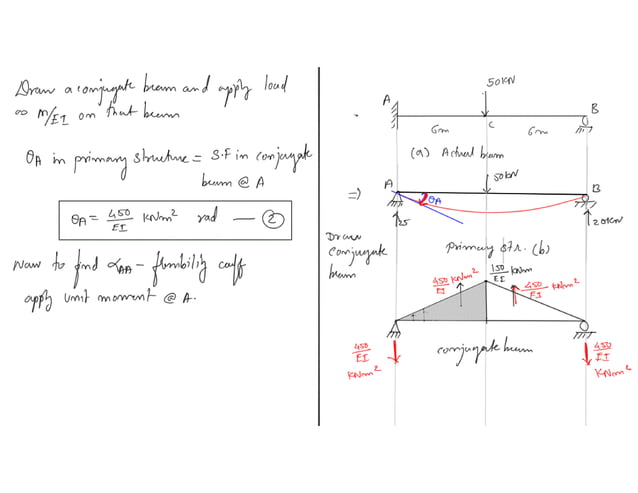 Draw a conjugate beam and apply load
as M/EI on that beam
θA in primary structure = S.F in conjugate
beam @ A
θA = 450/EI kNm² rad — ②
Now to find αAA - flexibility coeff
apply unit moment @ A.
50KN
A
B
C
6m
6m
(a) Actual beam
50KN
=)
A
B
θA
25
20KN
Primary str. (b)
Draw
conjugate
beam
450/EI KNm²
150/EI KNm
450/EI KNm²
450/EI
KNm²
conjugate beam
450/EI
KNm²